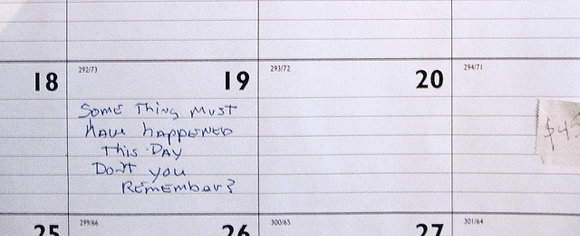 18
292/73
19
293/72
20
294/71
SOME Thing MUST
HAVE hAPPENED
This DAY
Don't you
REMEMBER?
25
299/66
26
300/65
27
301/64